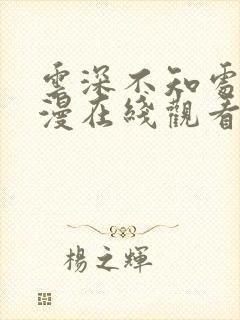 雲深不知處
漫在綫觀看
楊之輝